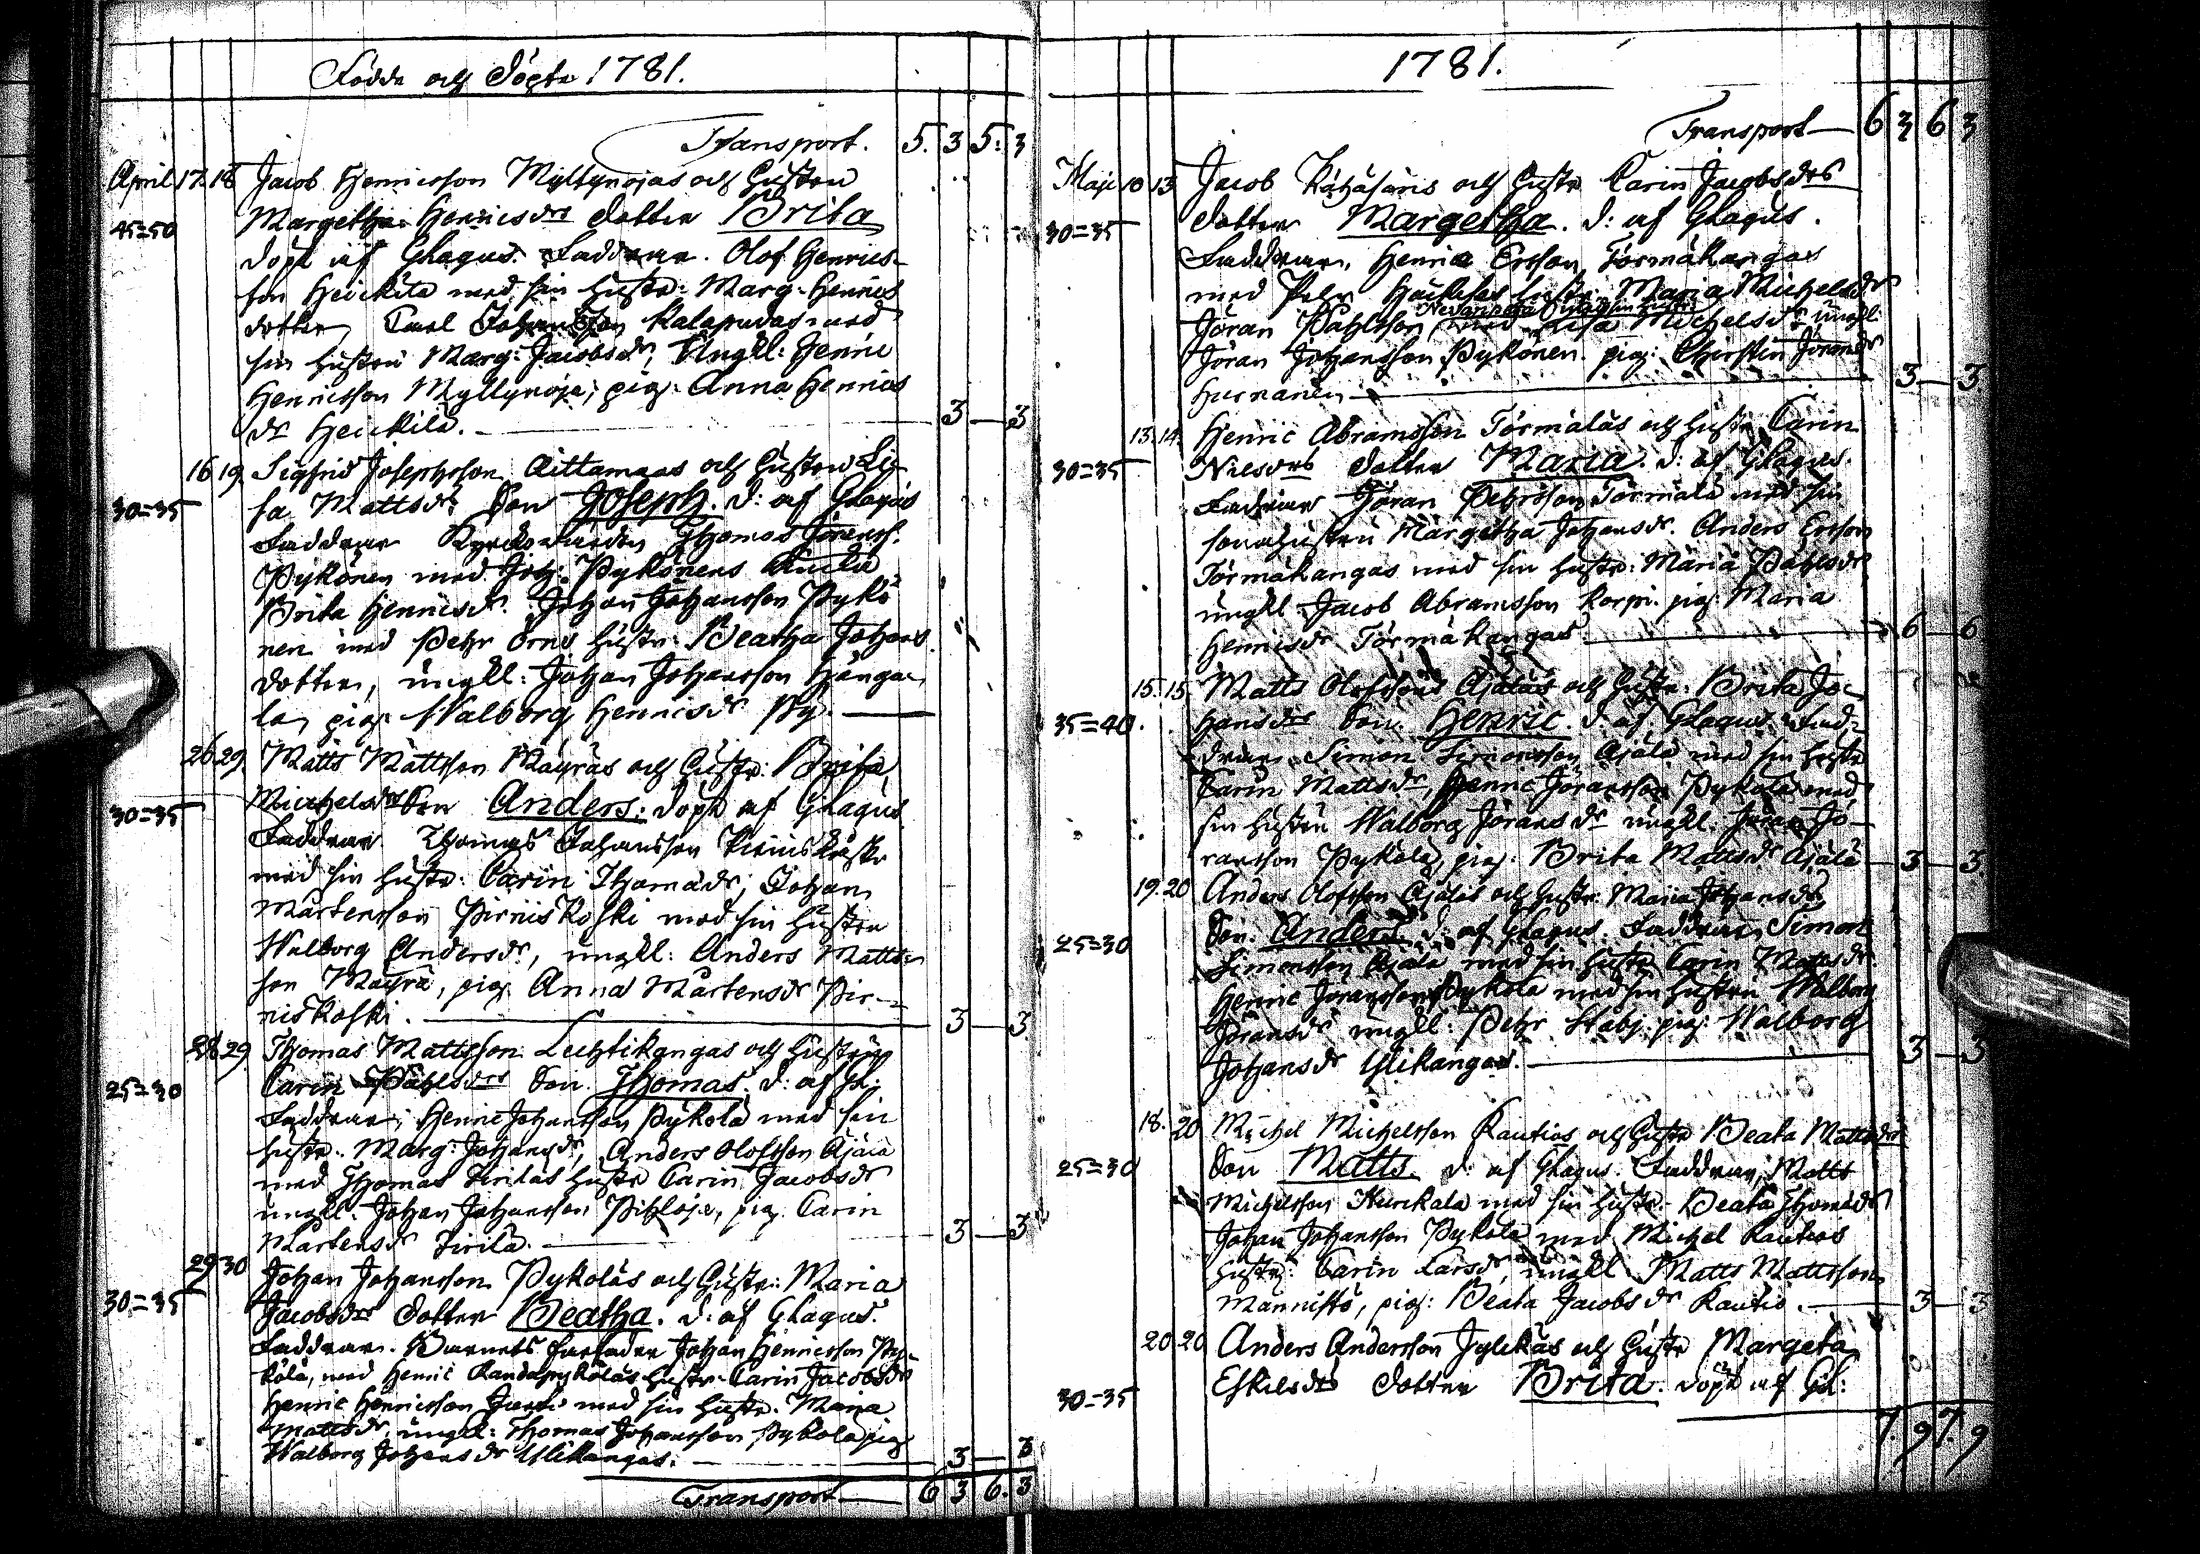 Födde och Döpte 1781.
Transport. 5. 3 5. 3
April 17. 18 Jacob Henricsson Myllynojas och hustru
45=50 Margetha Henricsdr dotter Brita
döpt af Glagus. Faddrar. Olof Henrics-
son Heickilä med sin hustr: Marg. Henrics
dotter, Carl Johansson Kalapudas med
sin hustru Marg: Jacobsdr, Ungkl: Henric
Henricsson Myllynoja, pig: Anna Henrics
dr Heickilä. — 3 — 3
16 19 Sigfrid Josephsson Aittamaas och hustru Li-
30=35 sa Mattsdr Son Joseph. d: af Glagus
Faddrar Thomas Jöranss.
Pykönen med Joh: Pykönens
Brita Henricsdr. Johan Johansson Pykö
nen med Pehr Örns hustr: Beatha Johans
dotter, ungkl: Johan Johansson Hänga-
la, pig: Walborg Henricsdr Py. —
26 29. Matts Mattsson Mäyräs och hustr: Brita
30=35 Michelsdrs Son Anders. döpt af Glagus
Faddrar Thomas Johansson
med sin hustr: Carin Thomædr, Johan
Mårtensson Pirniskoski med sin hustru
Walborg Andersdr, ungkl: Anders Matts-
son Mäyrä, pig: Anna Mårtensdr Pir-
niskoski. — 3 — 3.
28 29 Thomas Mattsson Lechtikangas och hustrus
25=30 Carin Påhlsdrs Son Thomas. d: af Gl:
Faddrar, Henric Johansson Pykölä med sin
hustr. Marg: Johansdr, Anders Olofsson Ajälä
med Thomas Tirilas hustr Carin Jacobsdr
ungkl. Johan Johansson Pihlaja, pig. Carin
Mårtensdr Tirilä. — 3 — 3
29 30 Johan Johansson Pyköläs och hustr: Maria
30=35 Jacobsdrs dotter Beatha. d: af Glagus.
Faddrar. Barnets farfader Johan Henricsson Py-
kölä, med Henric Randapyköläs hustr. Carin Jacobsdr
Henric Henricsson Juusi med sin hustr. Maria
Mattsdr. ungkl: Thomas Johansson Pykölä pig
Walborg Johansdr Ylikangas. — 3 — 3
Transport — 6 3 6. 3
1781.
Transport — 6 3 6 3
Maji 10 13 Jacob och hustr Carin Jacobsdrs
30=35 dotter Margetha. d: af Glagus.
Faddrar, Henric Ersson Törmäkangas
med Pehr hustr. Maria Michelsdr
Jöran Påhlsson med Lisa Michelsdr ungkl:
Jöran Johansson Pykönen. pig: Chirstin Jöransdr
Hurnanen — 3 — 3
13. 14. Henric Abramsson Törmäläs och hustr Carin
30=35 Nilsdrs dotter Maria. d: af Glagus.
Faddrar Jöran Pehrsson Törmälä med sin
sonahustru Margetha Johansdr. Anders Ersson
Törmäkangas med sin hustr: Maria Påhlsdr
ungkl. Jacob Abramsson Korpi. pig: Maria
Henricsdr Törmäkangas. — 6 — 6
15. 15. Matts Olofssons Ajäläs och hustr. Brita Jo-
35=40. hansdrs Son Henric. d. af Glagus. Fad-
drar, Simon Simonsson Ajälä med sin hustr
Carin Mattsdr, Henric Jöransson Pykölä med
sin hustru Walborg Jöransdr ungkl: Jöran Jö-
ransson Pykölä, pig: Brita Mattsdr Ajälä — 3 — 3.
19. 20 Anders Olofsson Ajäläs och hustr. Maria Johansdrs
25=30 Son. Anders d: af Glagus. Faddrar, Simon
Simonsson Ajälä med sin hustr Carin Mattsdr.
Henric Jöransson Pykölä med sin hustru Walborg
Jöransdr ungkl: Pehr Stabj. pig: Walborg
Johansdr Ylikangas. — 3 — 3
18. 20 Michel Michelsson Rautios och hustr Beata Mattsdrs
25=30 Son Matts. d. af Glagus. Faddrar, Matts
Michelsson Hurskala med sin hustr. Beata Thomædr
Johan Johansson Pykölä med Michel Rautios
hustr: Carin Larsdr, ungkl Matts Mattsson
Mannistö, pig: Beata Jacobsdr Rautio. — 3 — 3
20. 20 Anders Andersson Jylckäs och hustr Margeta
30=35 Eskilsdrs dotter Brita. döpt af Gl:
7. 9 7. 9